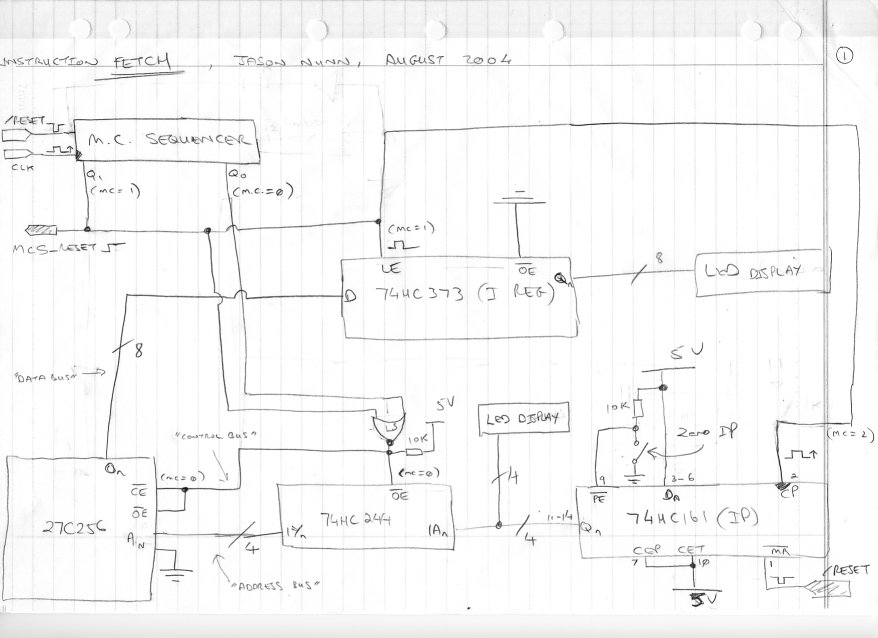 INSTRUCTION FETCH, JASON NUNN, AUGUST 2004
1
/RESET
CLK
M.C. SEQUENCER
Q1
(MC=1)
Q0
(M.C.=0)
MCS_RESET
(MC=1)
LE
OE
D
74HC373 (I REG)
Qn
8
LED DISPLAY
"DATA BUS"
8
5V
10K
Zero IP
LED DISPLAY
5V
10K
LS
"CONTROL BUS"
(MC=0)
(MC=0)
4
(MC=2)
On
CE
OE
27C256
AN
OE
74HC244
1Yn
1An
4
4
"ADDRESS BUS"
9
PE
3-6
Dn
2
CP
11-14
Qn
74HC161 (IP)
CEP
CET
MR
7
10
1
5V
/RESET